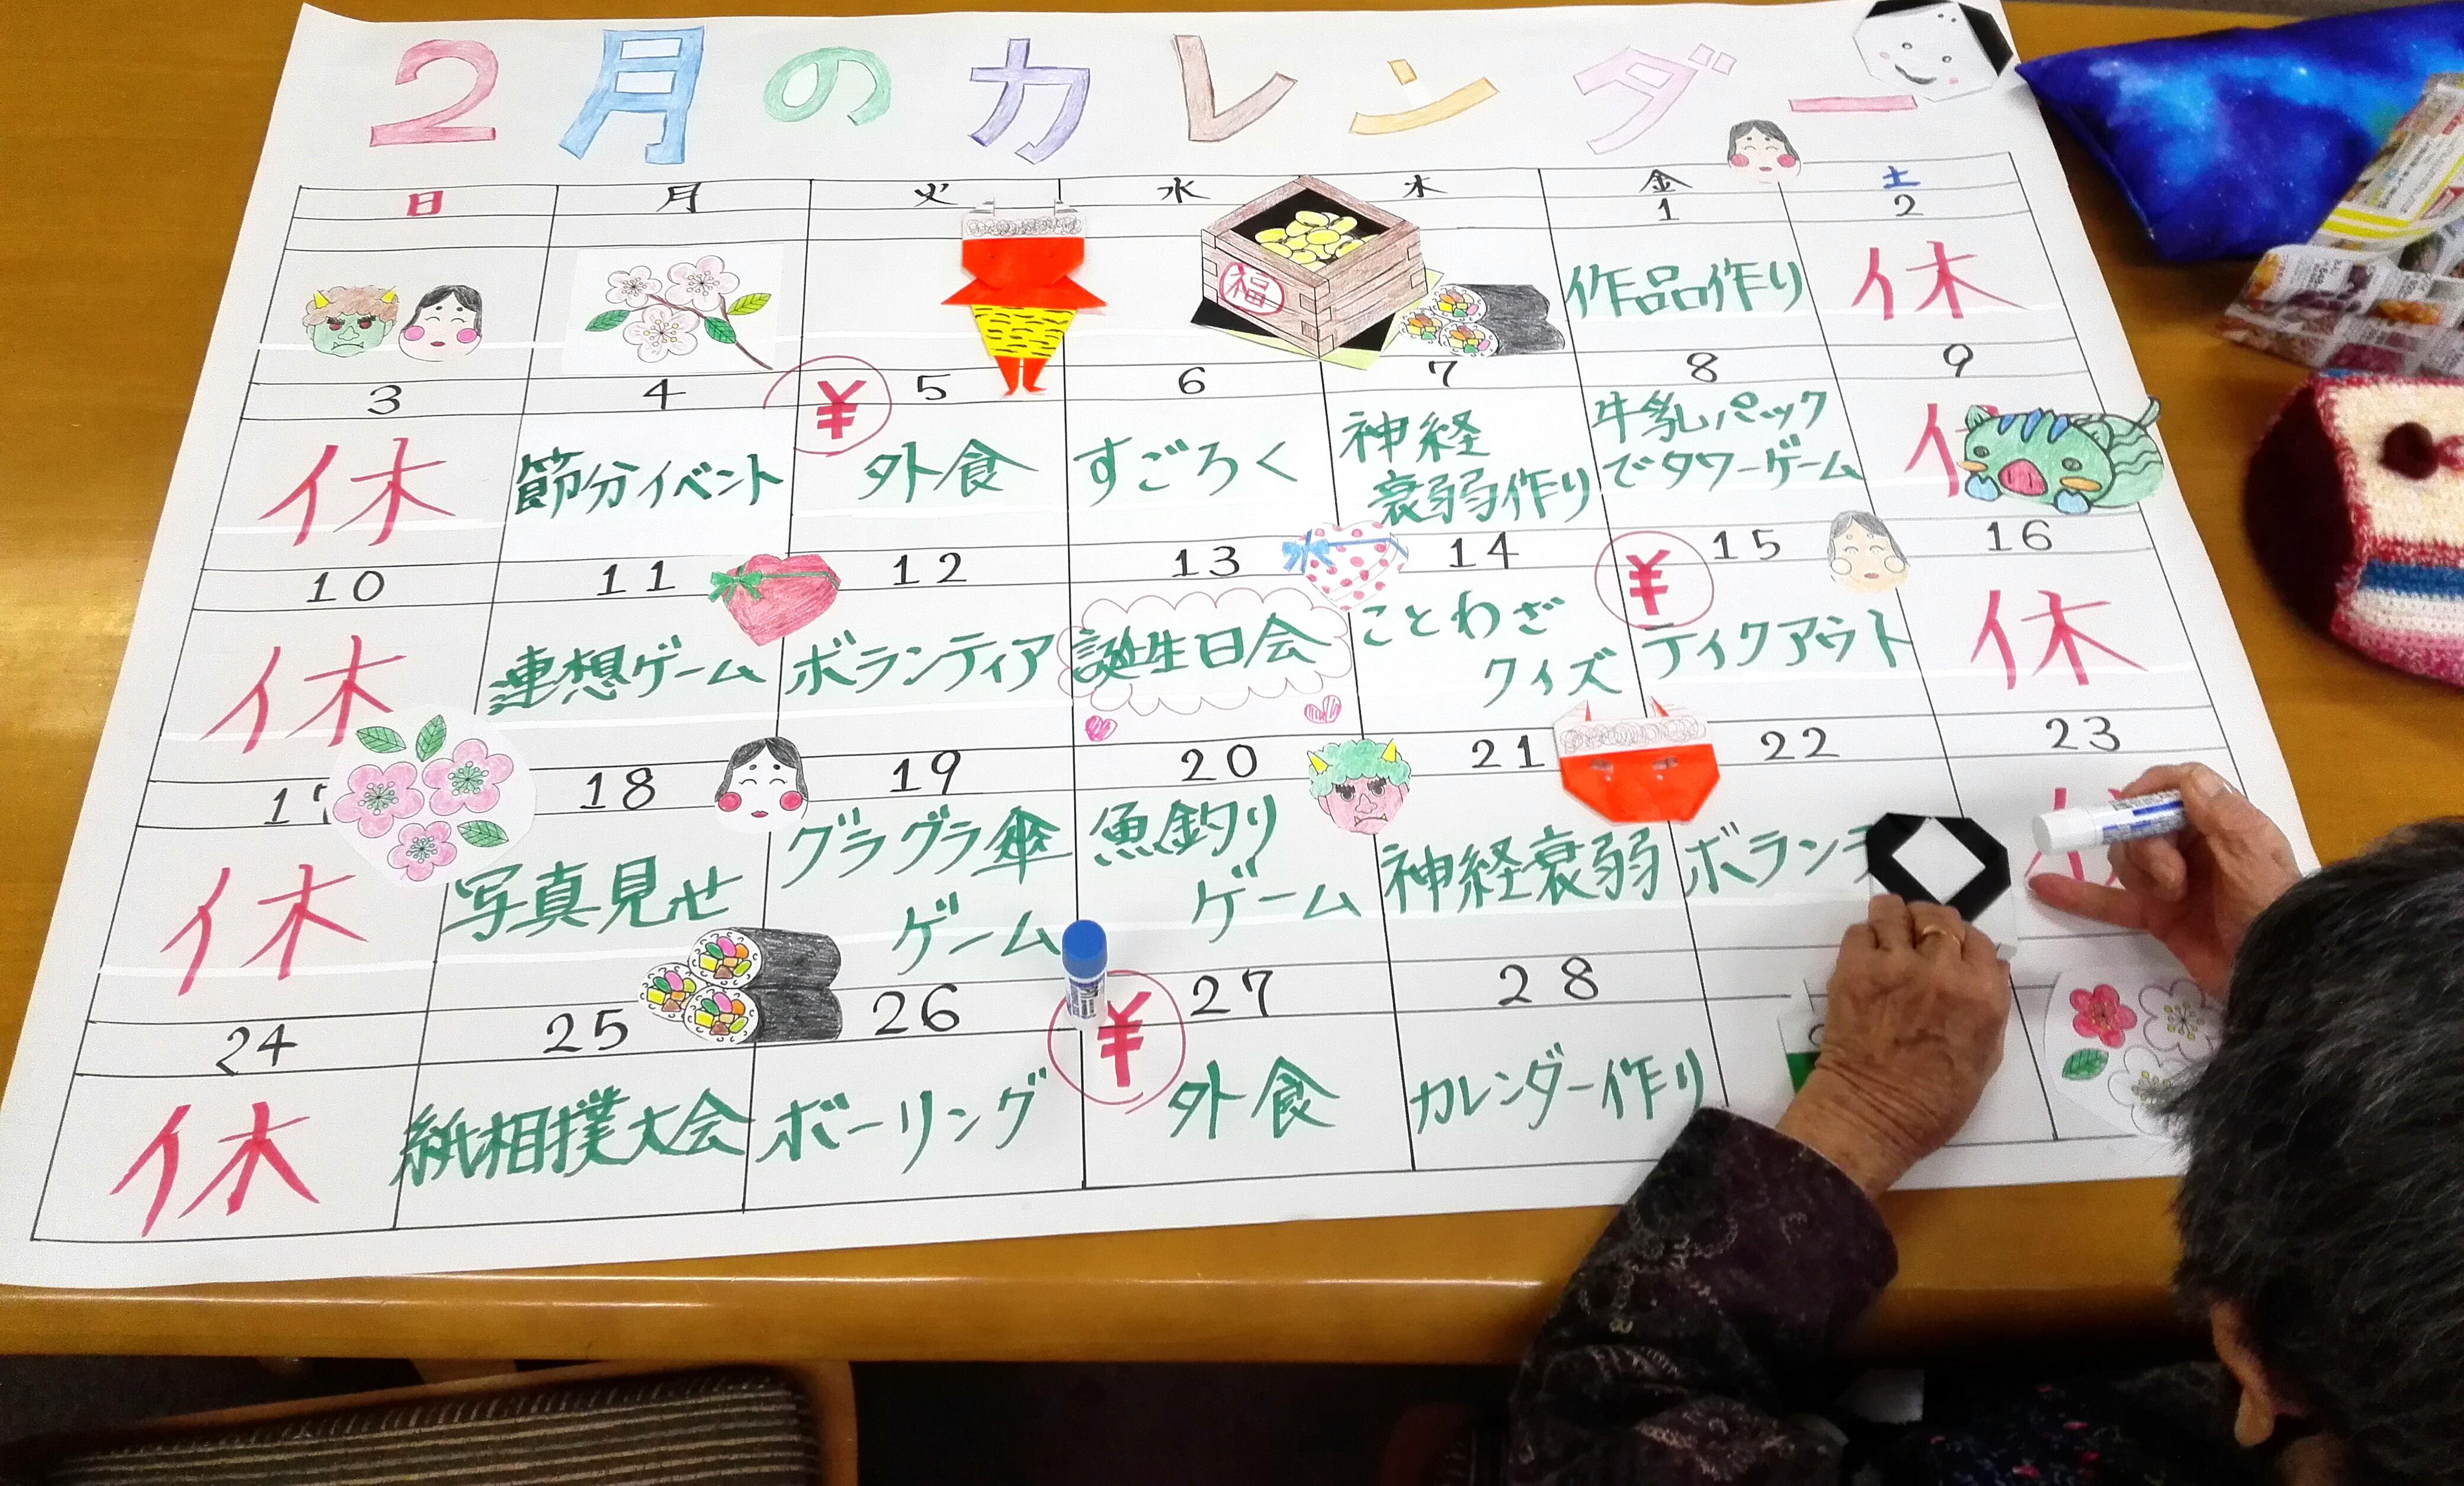 2月のカレンダー
日 月 火 水 木 金 土
1 2
福
作品作り 休
3 4 5 6 7 8 9
¥
休 節分イベント 外食 すごろく 神経 牛乳パック
衰弱作り でタワーゲーム
10 11 12 13 14 15 16
¥
休 連想ゲーム ボランティア 誕生日会 ことわざ テイクアウト 休
クイズ
18 19 20 21 22 23
休 写真見せ グラグラ傘 魚釣り 神経衰弱 ボラン
ゲーム ゲーム
24 25 26 27 28
¥
休 紙相撲大会 ボーリング 外食 カレンダー作り